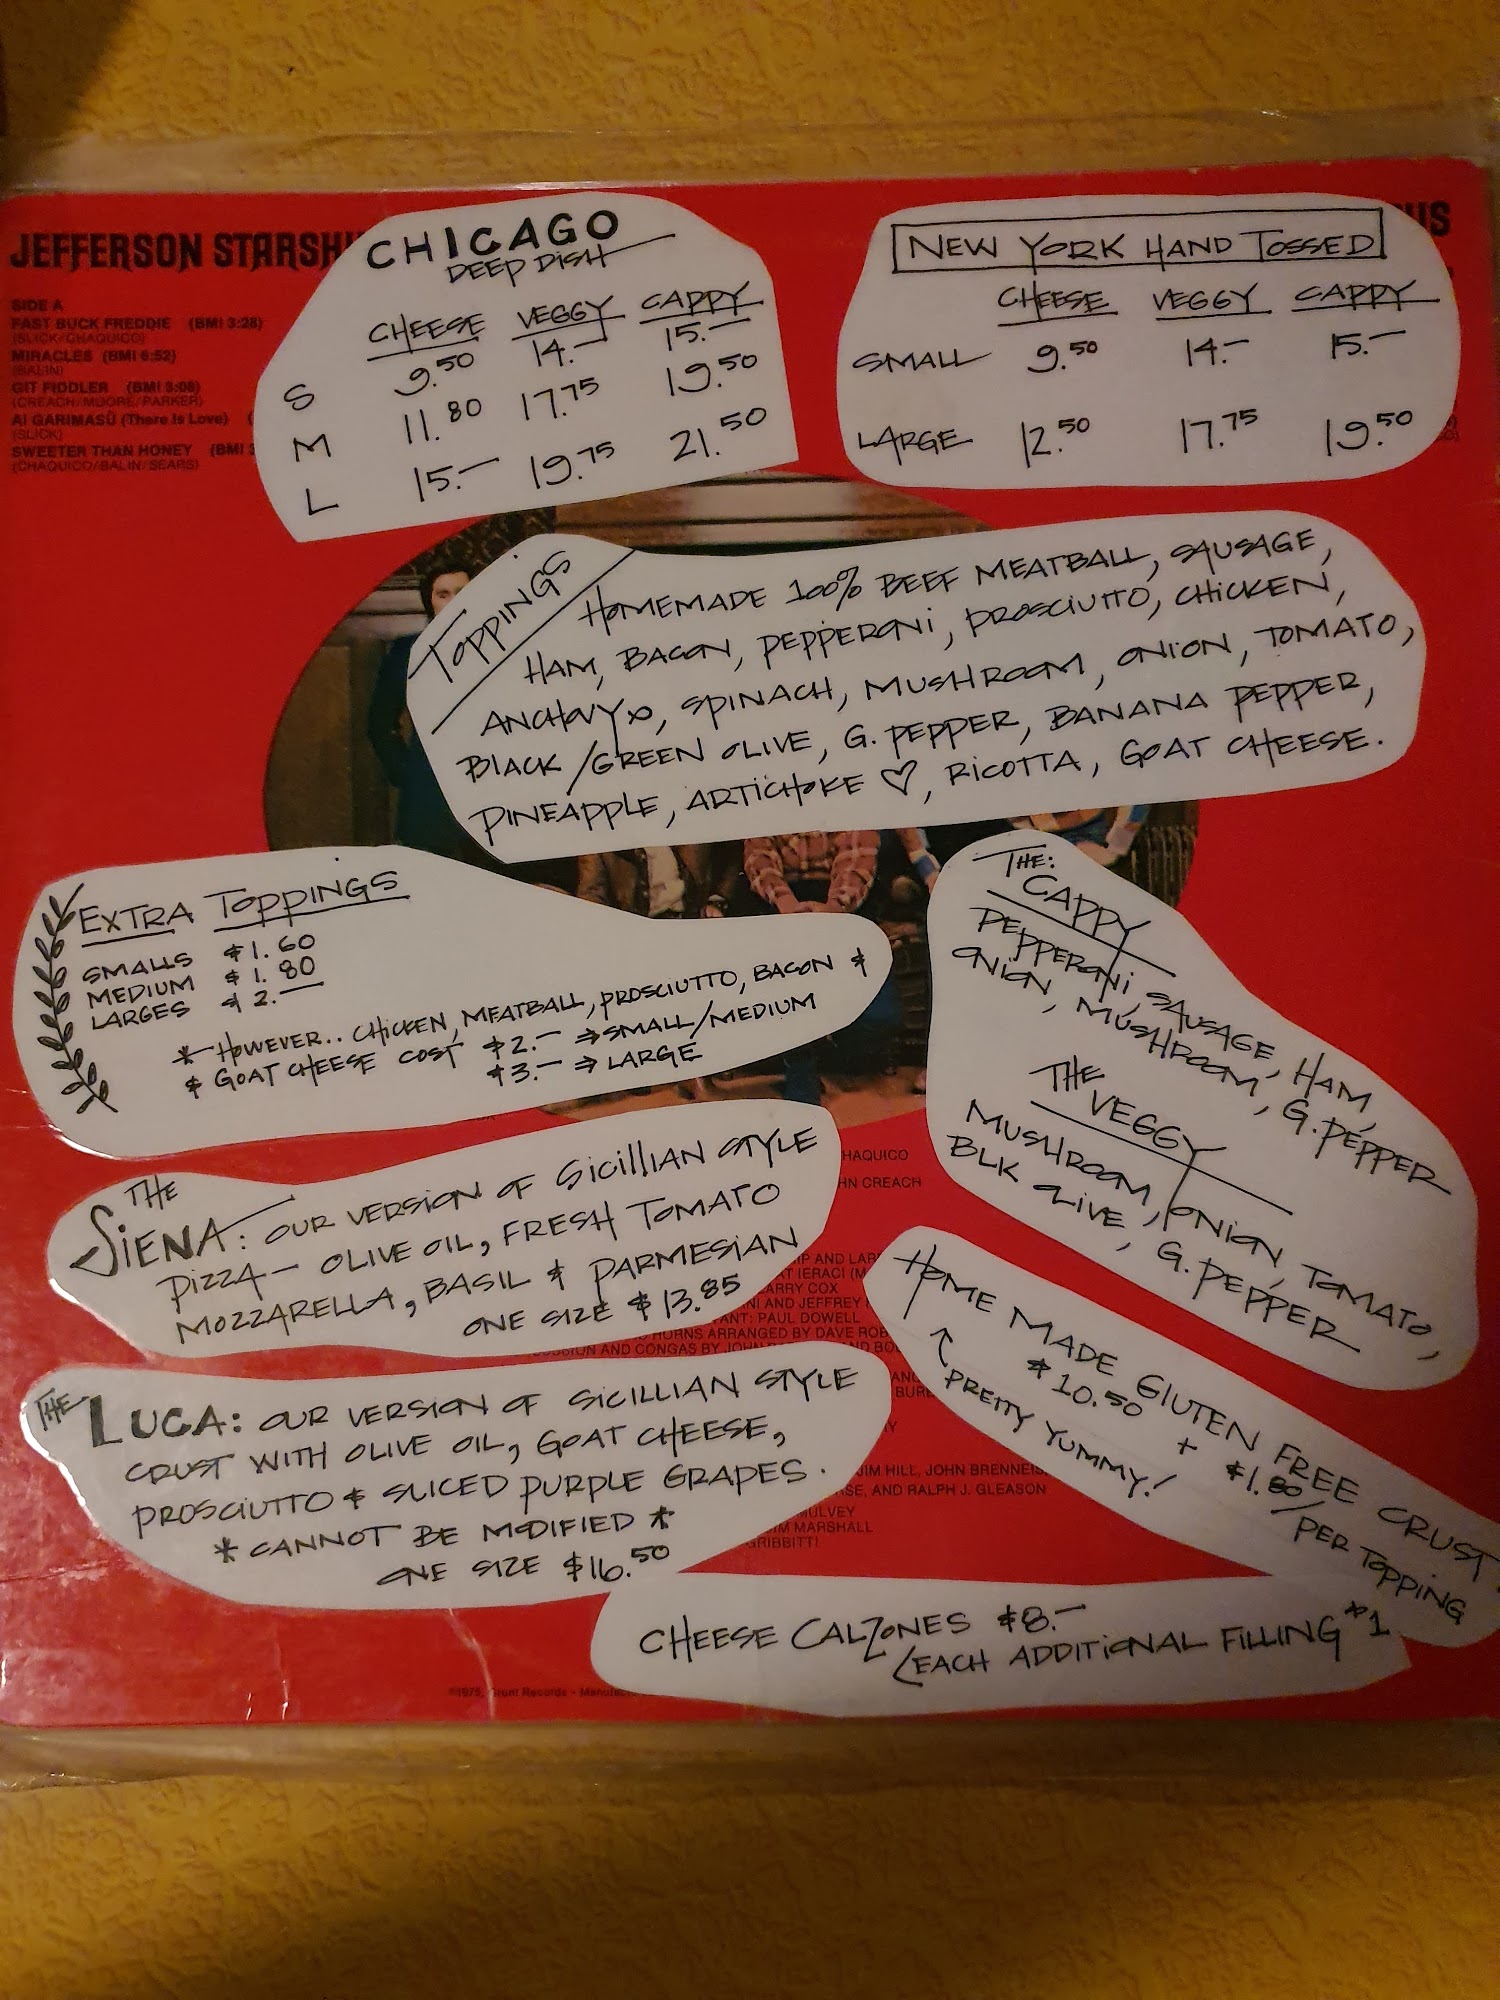 JEFFERSON STARSHI
US
SIDE A
FAST BUCK FREDDIE (BMI 3:28)
(SLICK/CHAQUICO)
MIRACLES (BMI 6:52)
(BALIN)
GIT FIDDLER (BMI 3:08)
(CREACH/MOORE/PARKER)
AI GARIMASŪ (There Is Love) (
(SLICK)
SWEETER THAN HONEY (BMI 3
(CHAQUICO/BALIN/SEARS)
CHICAGO
DEEP DISH
CHEESE VEGGY CAPPY
S 9.50 14.— 15.—
M 11.80 17.75 19.50
L 15.— 19.75 21.50
NEW YORK HAND TOSSED
CHEESE VEGGY CAPPY
SMALL 9.50 14.— 15.—
LARGE 12.50 17.75 19.50
TOPPINGS
HOMEMADE 100% BEEF MEATBALL, SAUSAGE,
HAM, BACON, PEPPERONI, PROSCIUTTO, CHICKEN,
ANCHOVY, SPINACH, MUSHROOM, ONION, TOMATO,
BLACK/GREEN OLIVE, G. PEPPER, BANANA PEPPER,
PINEAPPLE, ARTICHOKE ♡, RICOTTA, GOAT CHEESE.
EXTRA TOPPINGS
SMALLS $1.60
MEDIUM $1.80
LARGES $2.—
* HOWEVER.. CHICKEN, MEATBALL, PROSCIUTTO, BACON &
& GOAT CHEESE COST $2.— ⇒ SMALL/MEDIUM
$3.— ⇒ LARGE
THE:
CAPPY
PEPPERONI, SAUSAGE, HAM,
ONION, MUSHROOM, G. PEPPER
THE
VEGGY
MUSHROOM, ONION, TOMATO,
BLK OLIVE, G. PEPPER
THE
SIENA: OUR VERSION OF SICILLIAN STYLE
PIZZA — OLIVE OIL, FRESH TOMATO
MOZZARELLA, BASIL & PARMESIAN
ONE SIZE $13.85
THE LUCA: OUR VERSION OF SICILLIAN STYLE
CRUST WITH OLIVE OIL, GOAT CHEESE,
PROSCIUTTO & SLICED PURPLE GRAPES.
* CANNOT BE MODIFIED *
ONE SIZE $16.50
HOME MADE GLUTEN FREE CRUST!
$10.50 + $1.80/PER TOPPING
PRETTY YUMMY!
CHEESE CALZONES $8.—
(EACH ADDITIONAL FILLING $1
HAQUICO
HN CREACH
IP AND LAR
AT IERACI (M
ARRY COX
NI AND JEFFREY
ANT: PAUL DOWELL
HORNS ARRANGED BY DAVE ROB
SSION AND CONGAS BY JOHN
JIM HILL, JOHN BRENNEIS,
RSE, AND RALPH J. GLEASON
MULVEY
IM MARSHALL
GRIBBITT!
©1975, Grunt Records - Manufact